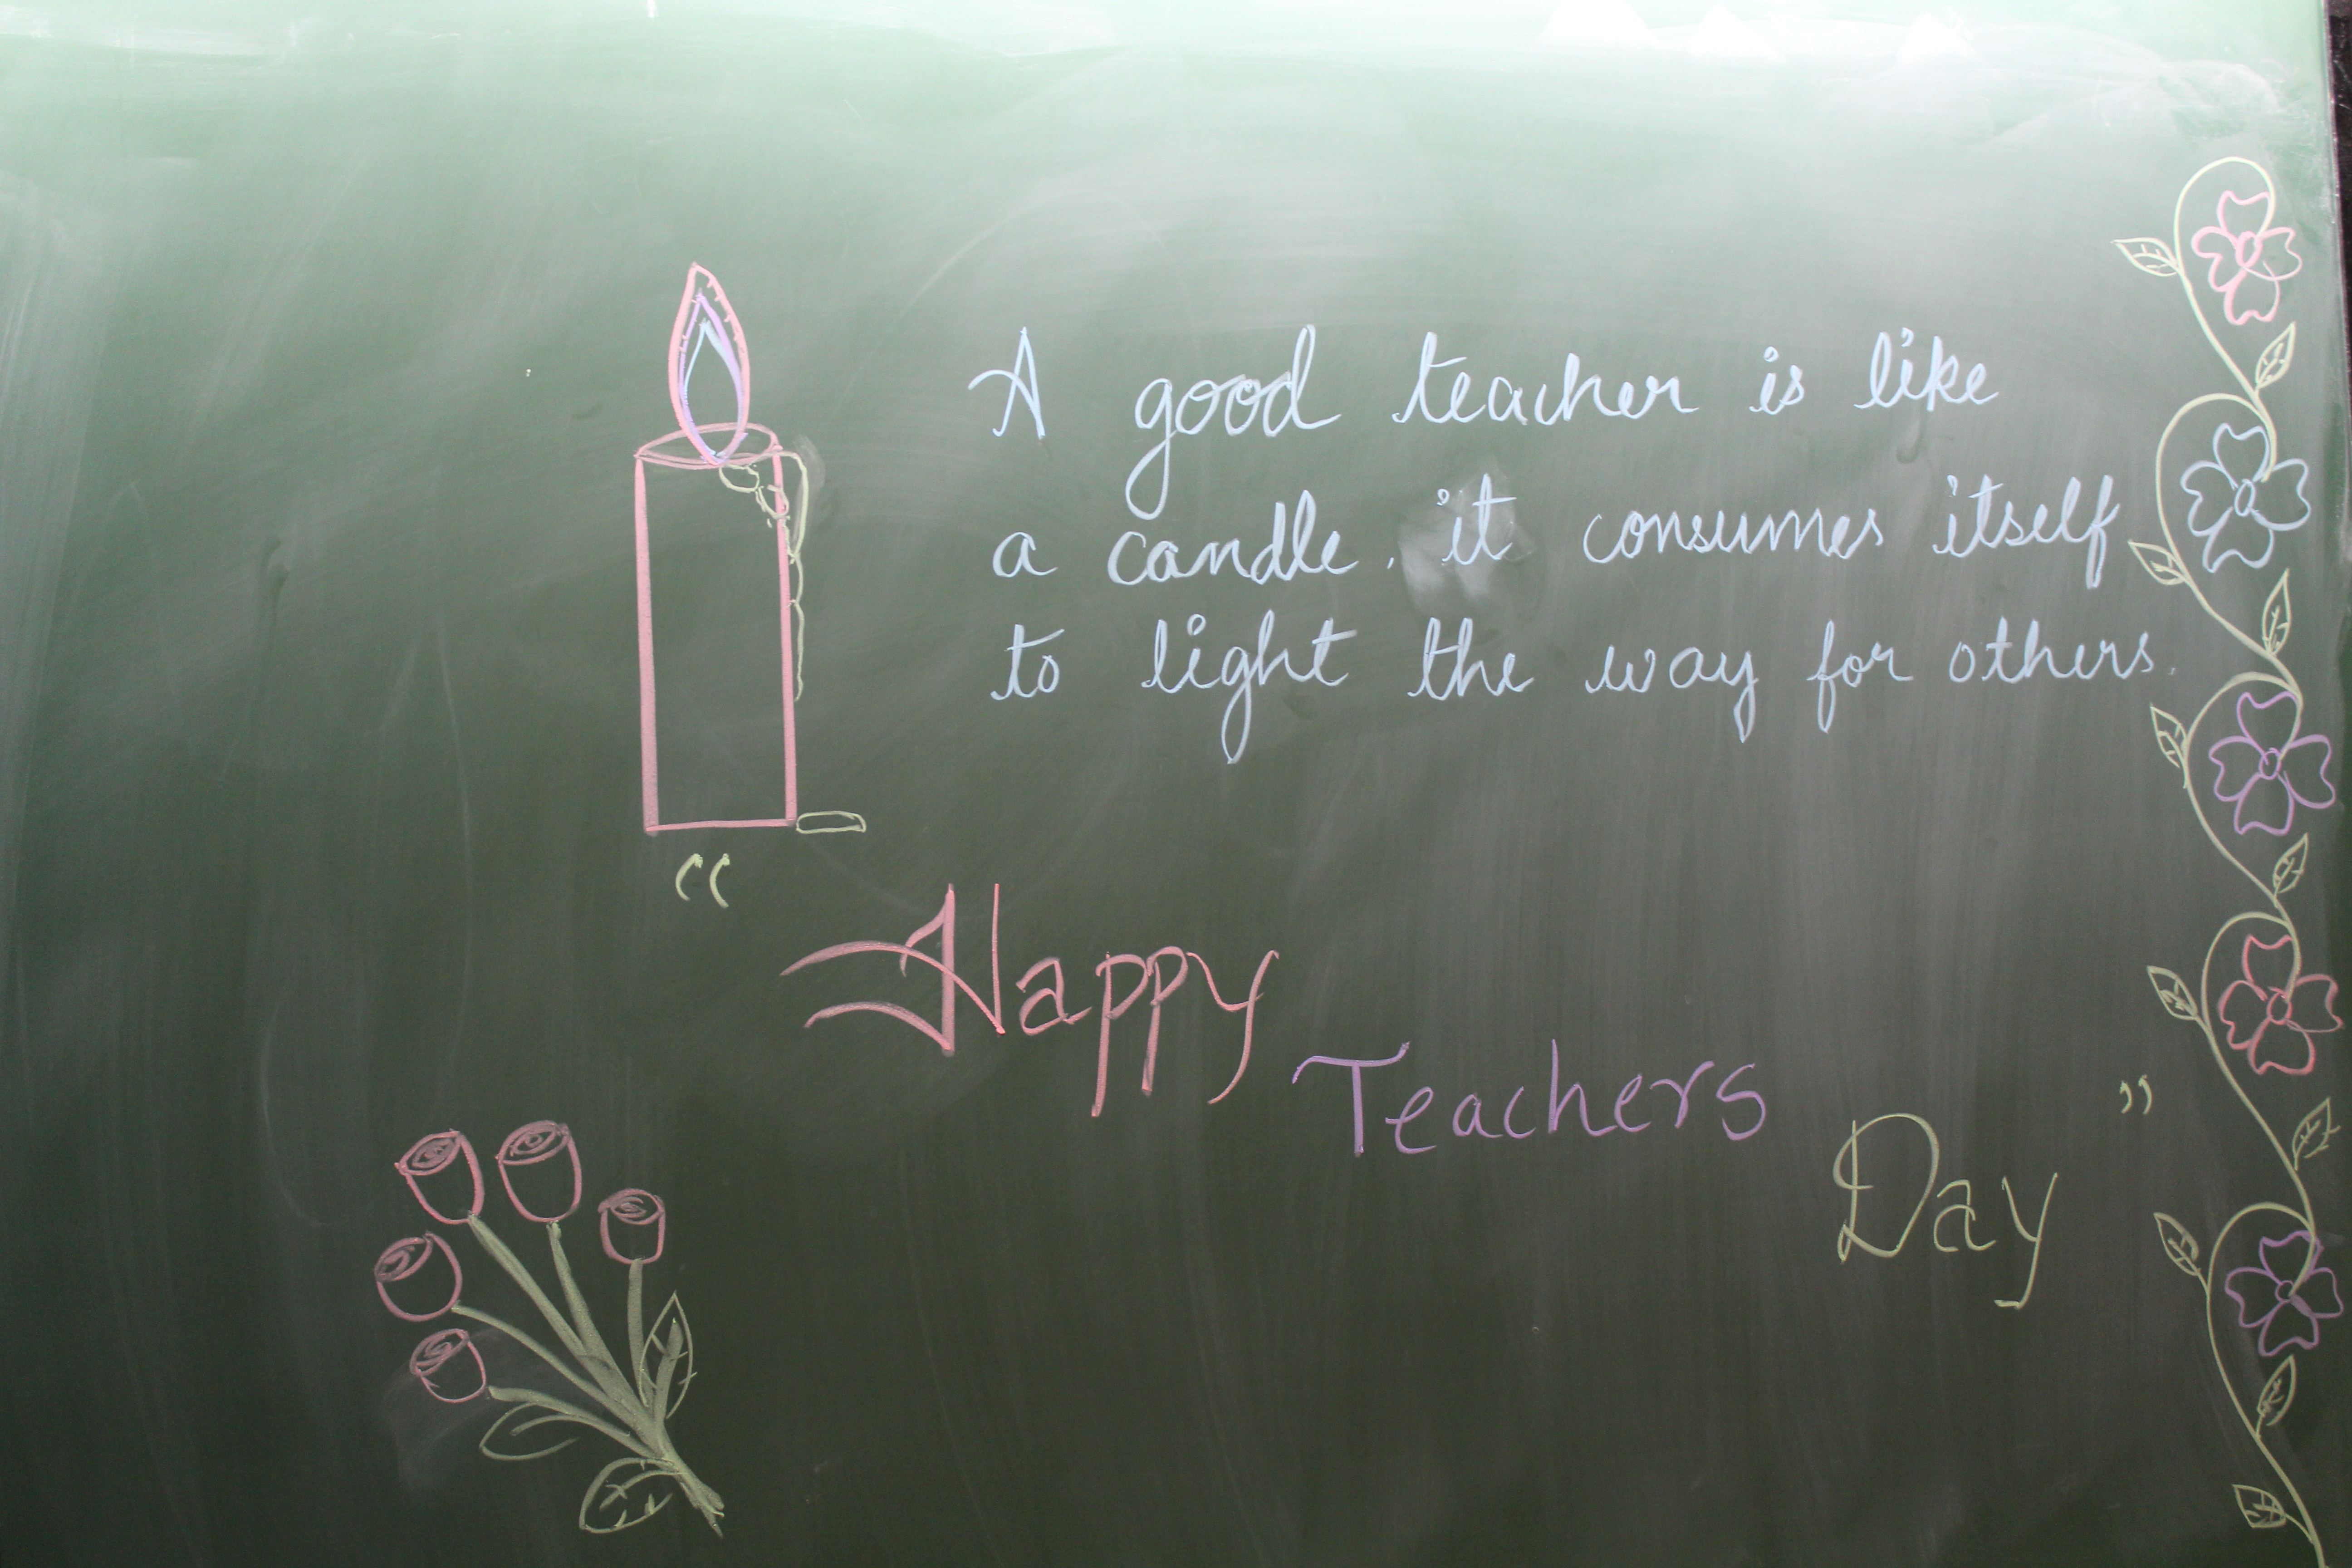 A good teacher is like
a candle. it consumes itself
to light the way for others.
“Happy
Teachers
Day”